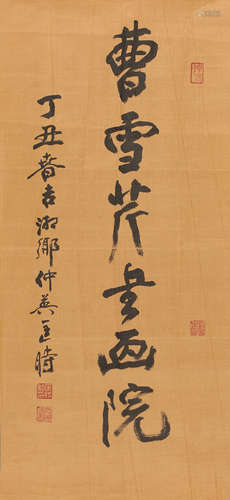 曹雪芹書画院
丁丑春吉湘鄉仲英匡時